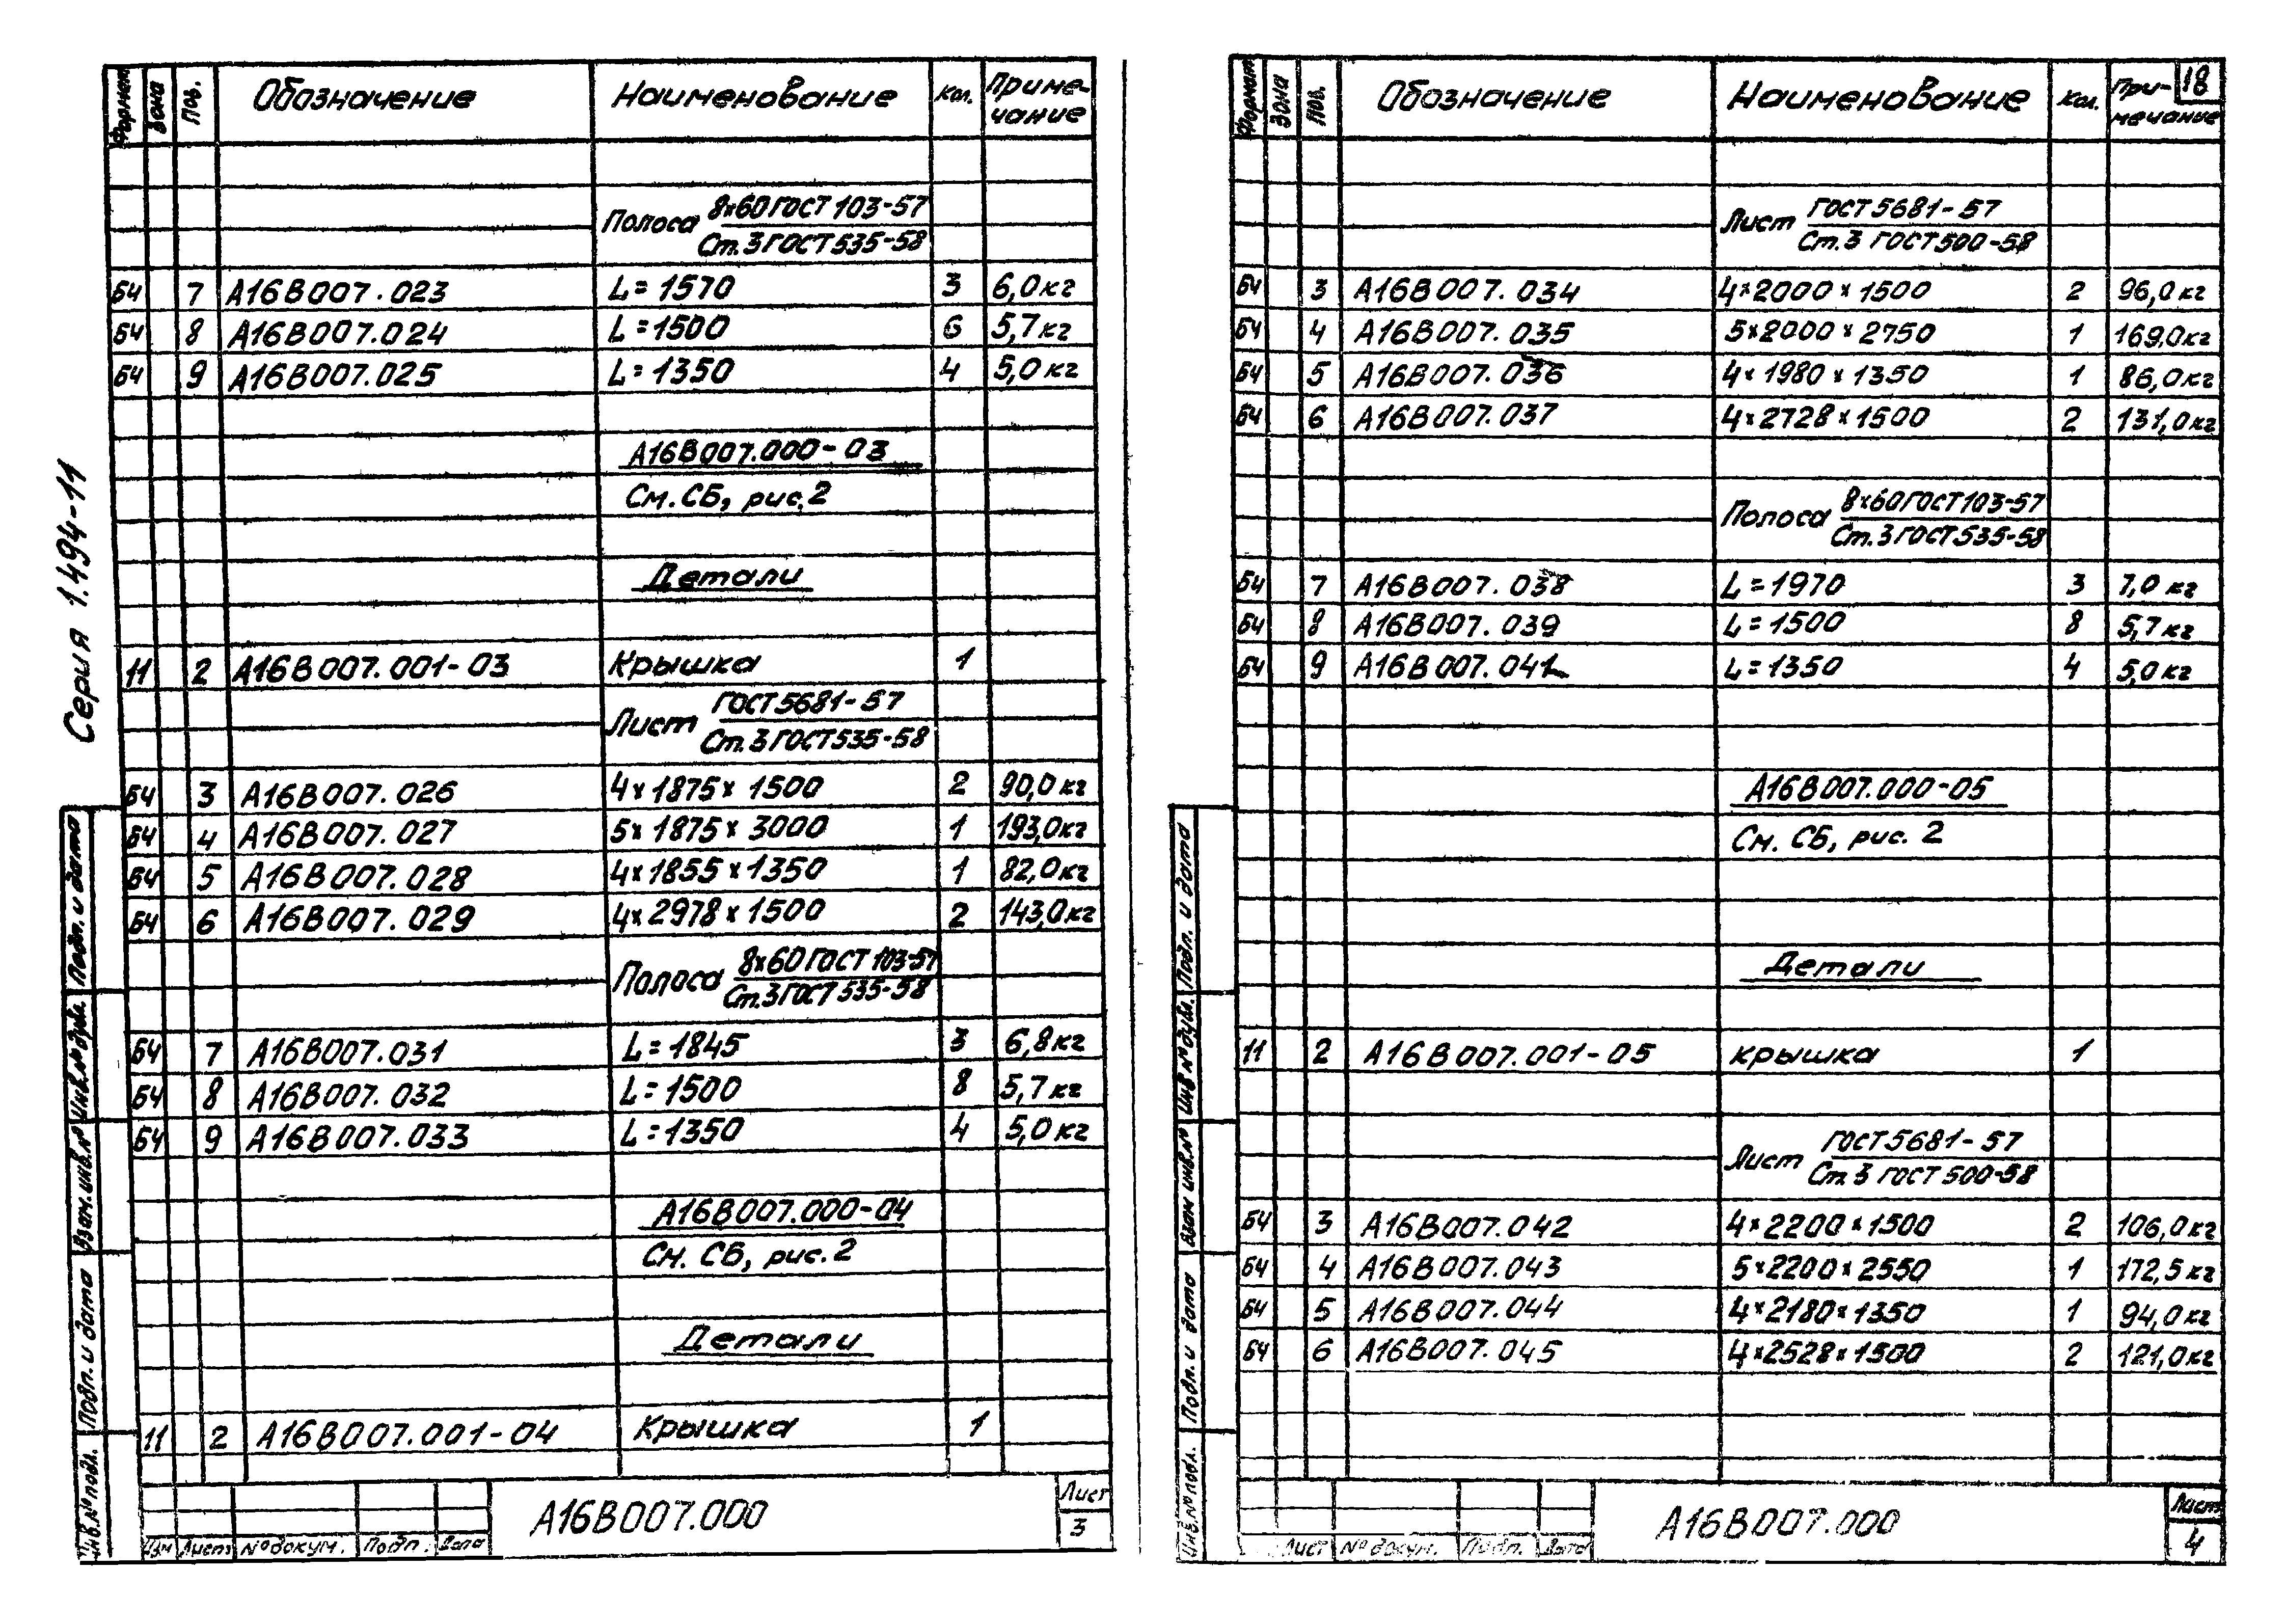 Серия 1.494-11
Формат Зона Поз. Обозначение Наименование Кол. Приме-
чание
Полоса 8х60 ГОСТ 103-57
Ст.3 ГОСТ 535-58
БЧ 7 А16В007.023 L=1570 3 6,0кг
БЧ 8 А16В007.024 L=1500 6 5,7кг
БЧ 9 А16В007.025 L=1350 4 5,0кг
А16В007.000-03
См. СБ, рис. 2
Детали
11 2 А16В007.001-03 Крышка 1
Лист ГОСТ 5681-57
Ст.3 ГОСТ 535-58
БЧ 3 А16В007.026 4х1875х1500 2 90,0кг
БЧ 4 А16В007.027 5х1875х3000 1 193,0кг
БЧ 5 А16В007.028 4х1855х1350 1 82,0кг
БЧ 6 А16В007.029 4х2978х1500 2 143,0кг
Полоса 8х60 ГОСТ 103-57
Ст.3 ГОСТ 535-58
БЧ 7 А16В007.031 L=1845 3 6,8кг
БЧ 8 А16В007.032 L=1500 8 5,7кг
БЧ 9 А16В007.033 L=1350 4 5,0кг
А16В007.000-04
См. СБ, рис. 2
Детали
11 2 А16В007.001-04 Крышка 1
Инв.№ подл. Подп. и дата Взам. инв.№ Инв.№ дубл. Подп. и дата
Изм Лист № докум. Подп. Дата
А16В007.000
Лист
3
18
Формат Зона Поз. Обозначение Наименование Кол. При-
мечание
Лист ГОСТ 5681-57
Ст.3 ГОСТ 500-58
БЧ 3 А16В007.034 4х2000х1500 2 96,0кг
БЧ 4 А16В007.035 5х2000х2750 1 169,0кг
БЧ 5 А16В007.036 4х1980х1350 1 86,0кг
БЧ 6 А16В007.037 4х2728х1500 2 131,0кг
Полоса 8х60 ГОСТ 103-57
Ст.3 ГОСТ 535-58
БЧ 7 А16В007.038 L=1970 3 7,0 кг
БЧ 8 А16В007.039 L=1500 8 5,7кг
БЧ 9 А16В007.041 L=1350 4 5,0кг
А16В007.000-05
См. СБ, рис. 2
Детали
11 2 А16В007.001-05 крышка 1
Лист ГОСТ 5681-57
Ст.3 ГОСТ 500-58
БЧ 3 А16В007.042 4х2200х1500 2 106,0кг
БЧ 4 А16В007.043 5х2200х2550 1 172,5кг
БЧ 5 А16В007.044 4х2180х1350 1 94,0кг
БЧ 6 А16В007.045 4х2528х1500 2 121,0кг
Инв.№ подл. Подп. и дата Взам инв.№ Инв № дубл. Подп. и дата
Лист № докум. Подп. Дата
А16В007.000
Лист
4